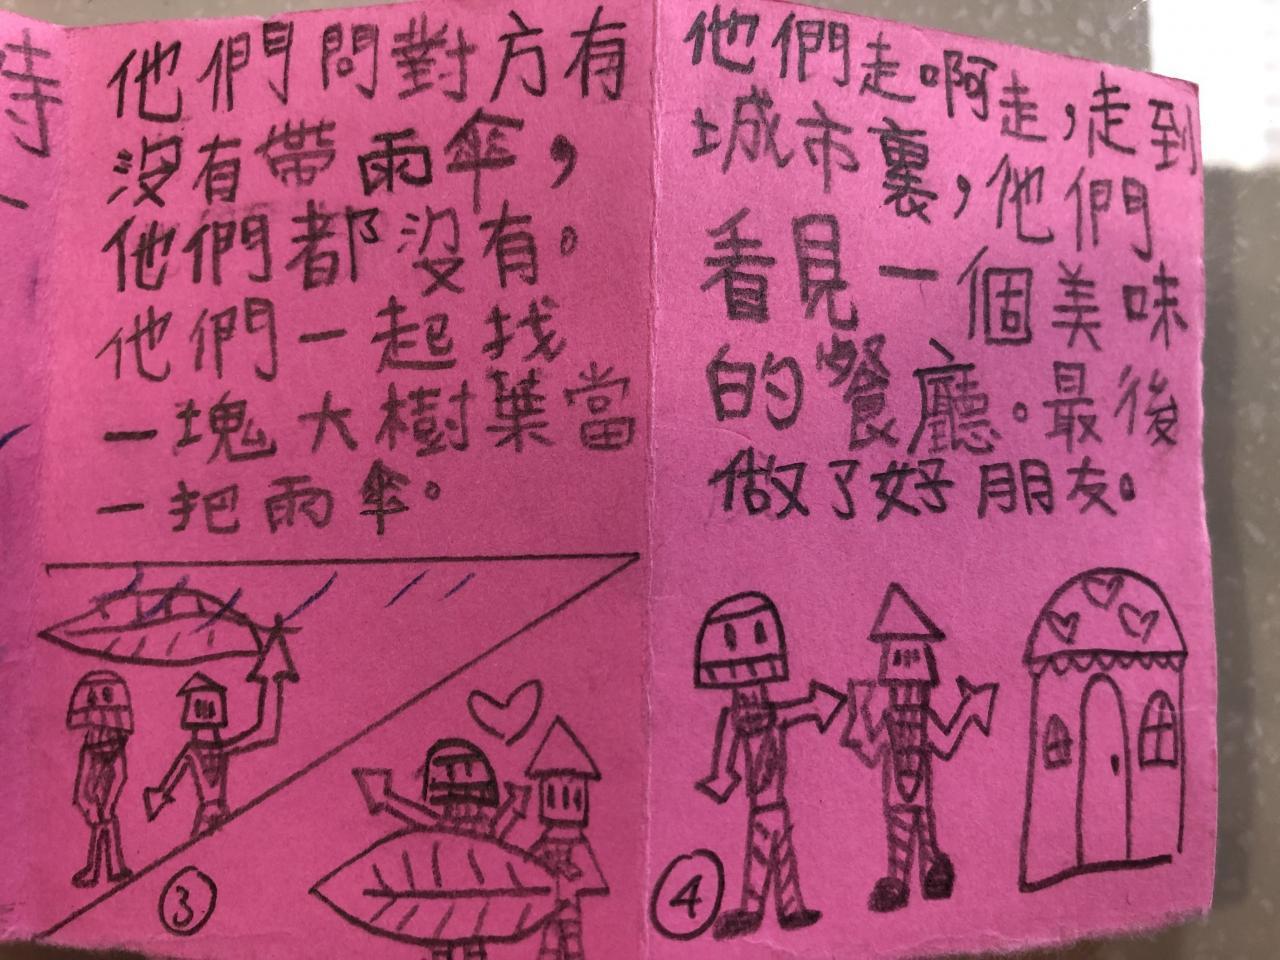 時
他們問對方有
沒有帶雨傘，
他們都沒有。
他們一起找
一塊大樹葉當
一把雨傘。
3
他們走啊走，走到
城市裏，他們
看見一個美味
的餐廳。最後
做了好朋友。
4